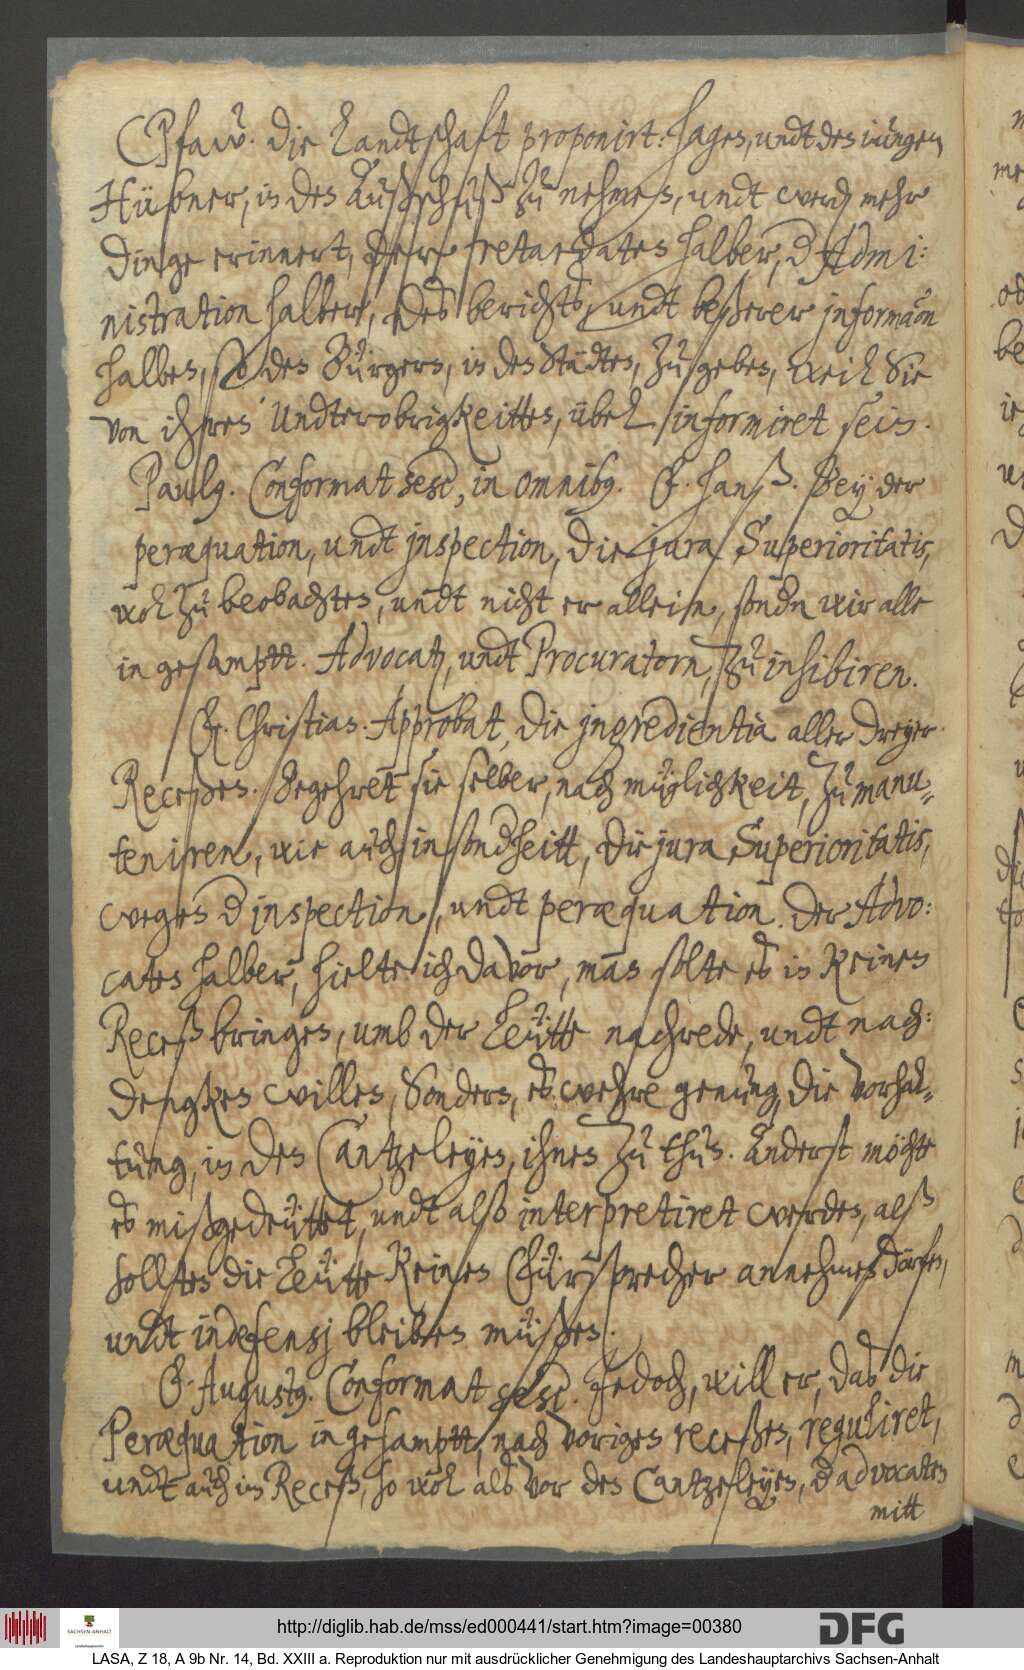 Pfaw. die Landtschafft proponirt: hagen, undt des iungen
Hübner, in den Außschuß zu nehmen, undt werd mehr
dinge erinnert, derr retardaten halber, d Admi:
nistration halber, des berichts, undt beßerer informãon
halben, so den Bürgern, in den Städten, zu geben, weil Sie
von ihren Undterobrigkeitten, übel informiret sein.
Paulg. Conformat sese, in omnibg. G. Hanß. Bey der
peræquation, undt jnspection, die jura Superioritatis,
wol zu beobachten, undt nicht er allein, sondn wir alle
in gesamptt. Advocatj, undt Procuratorn, zu inhibiren.
G. Christian. Approbat, die jngredientia aller dreyer
Receßen. Begehret sie selber, nach mügligkeit, zu manu-
teniren, wie auch insondheitt, die jura Superioritatis,
wegen d inspection, undt peræquation. der Advo:
caten halber, hielte ich davor, man solte es in keinen
Receß bringen, umb der Leütte nachrede, undt nach:
dengken willen, Sondern, es wehre genung, die vorhal-
tung, in den Cantzeleyen, ihnen zu thun. Anderst möchte
es mißgedeüttet, undt also interpretiret werden, alß
sollten die Leütte keinen Fürsprecher annehmen dörfen,
undt indefensj bleiben müßen.
G. Augustg. Conformat sese. Jedoch, will er, das die
Peræquation in gesamptt, nach vorigen receßen, reguliret,
undt auch im Receß, so wol als vor den Cantzeleyen, d advocaten
mitt
http://diglib.hab.de/mss/ed000441/start.htm?image=00380
DFG
SACHSEN-ANHALT
Landeshauptarchiv
LASA, Z 18, A 9b Nr. 14, Bd. XXIII a. Reproduktion nur mit ausdrücklicher Genehmigung des Landeshauptarchivs Sachsen-Anhalt